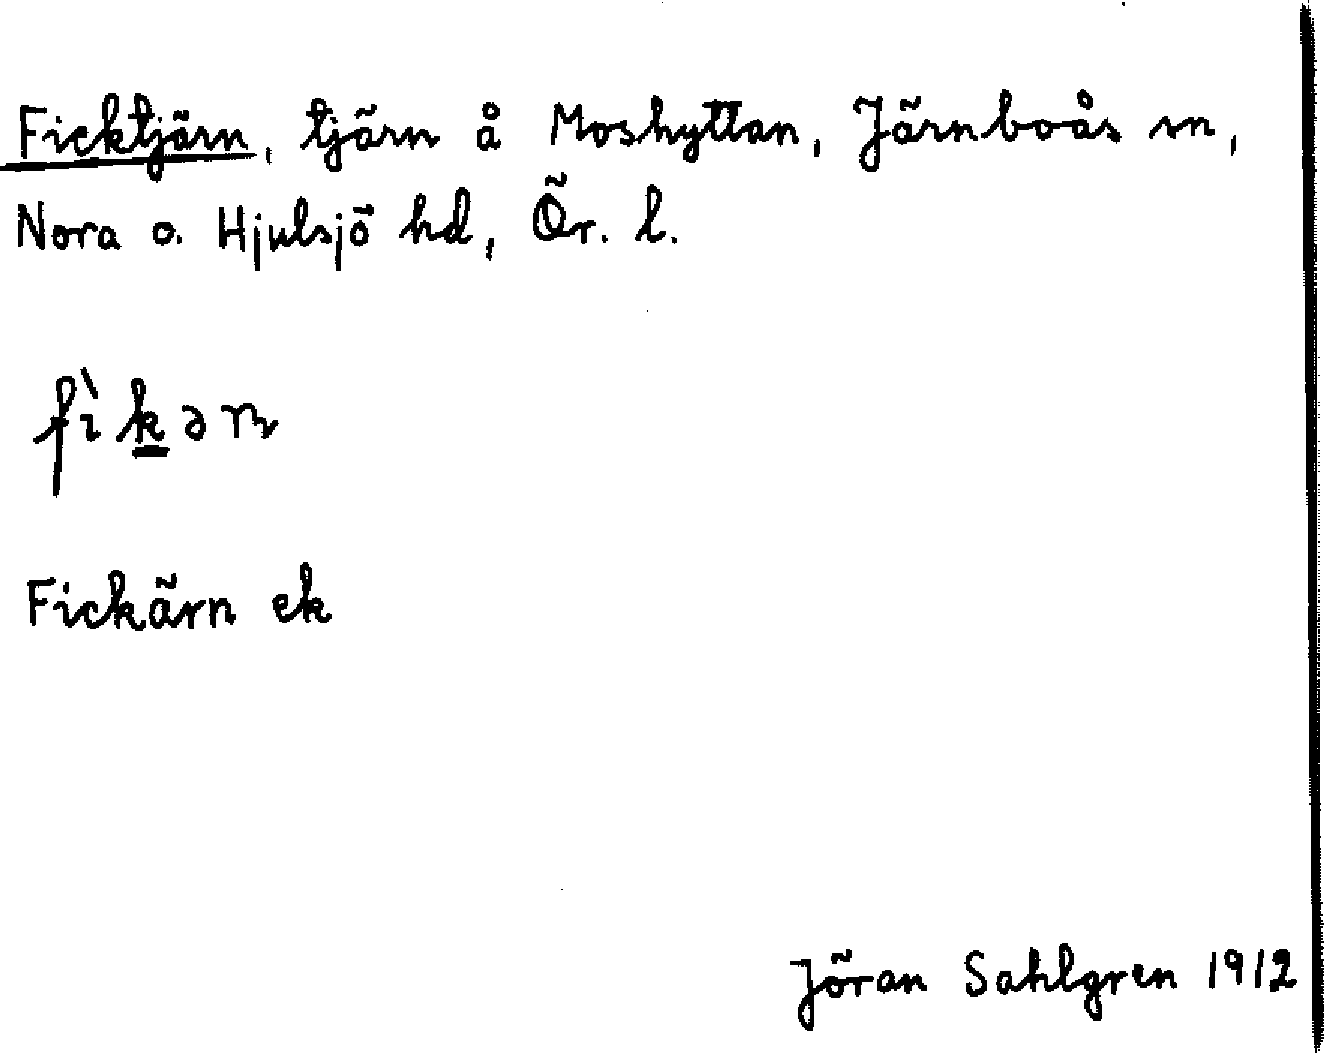 Ficktjärn, tjärn å Moshyttan, Järnboås sn,
Nora o. Hjulsjö hd, Ör. l.
fìk̲əɳ
Fickärn ek
Jöran Sahlgren 1912